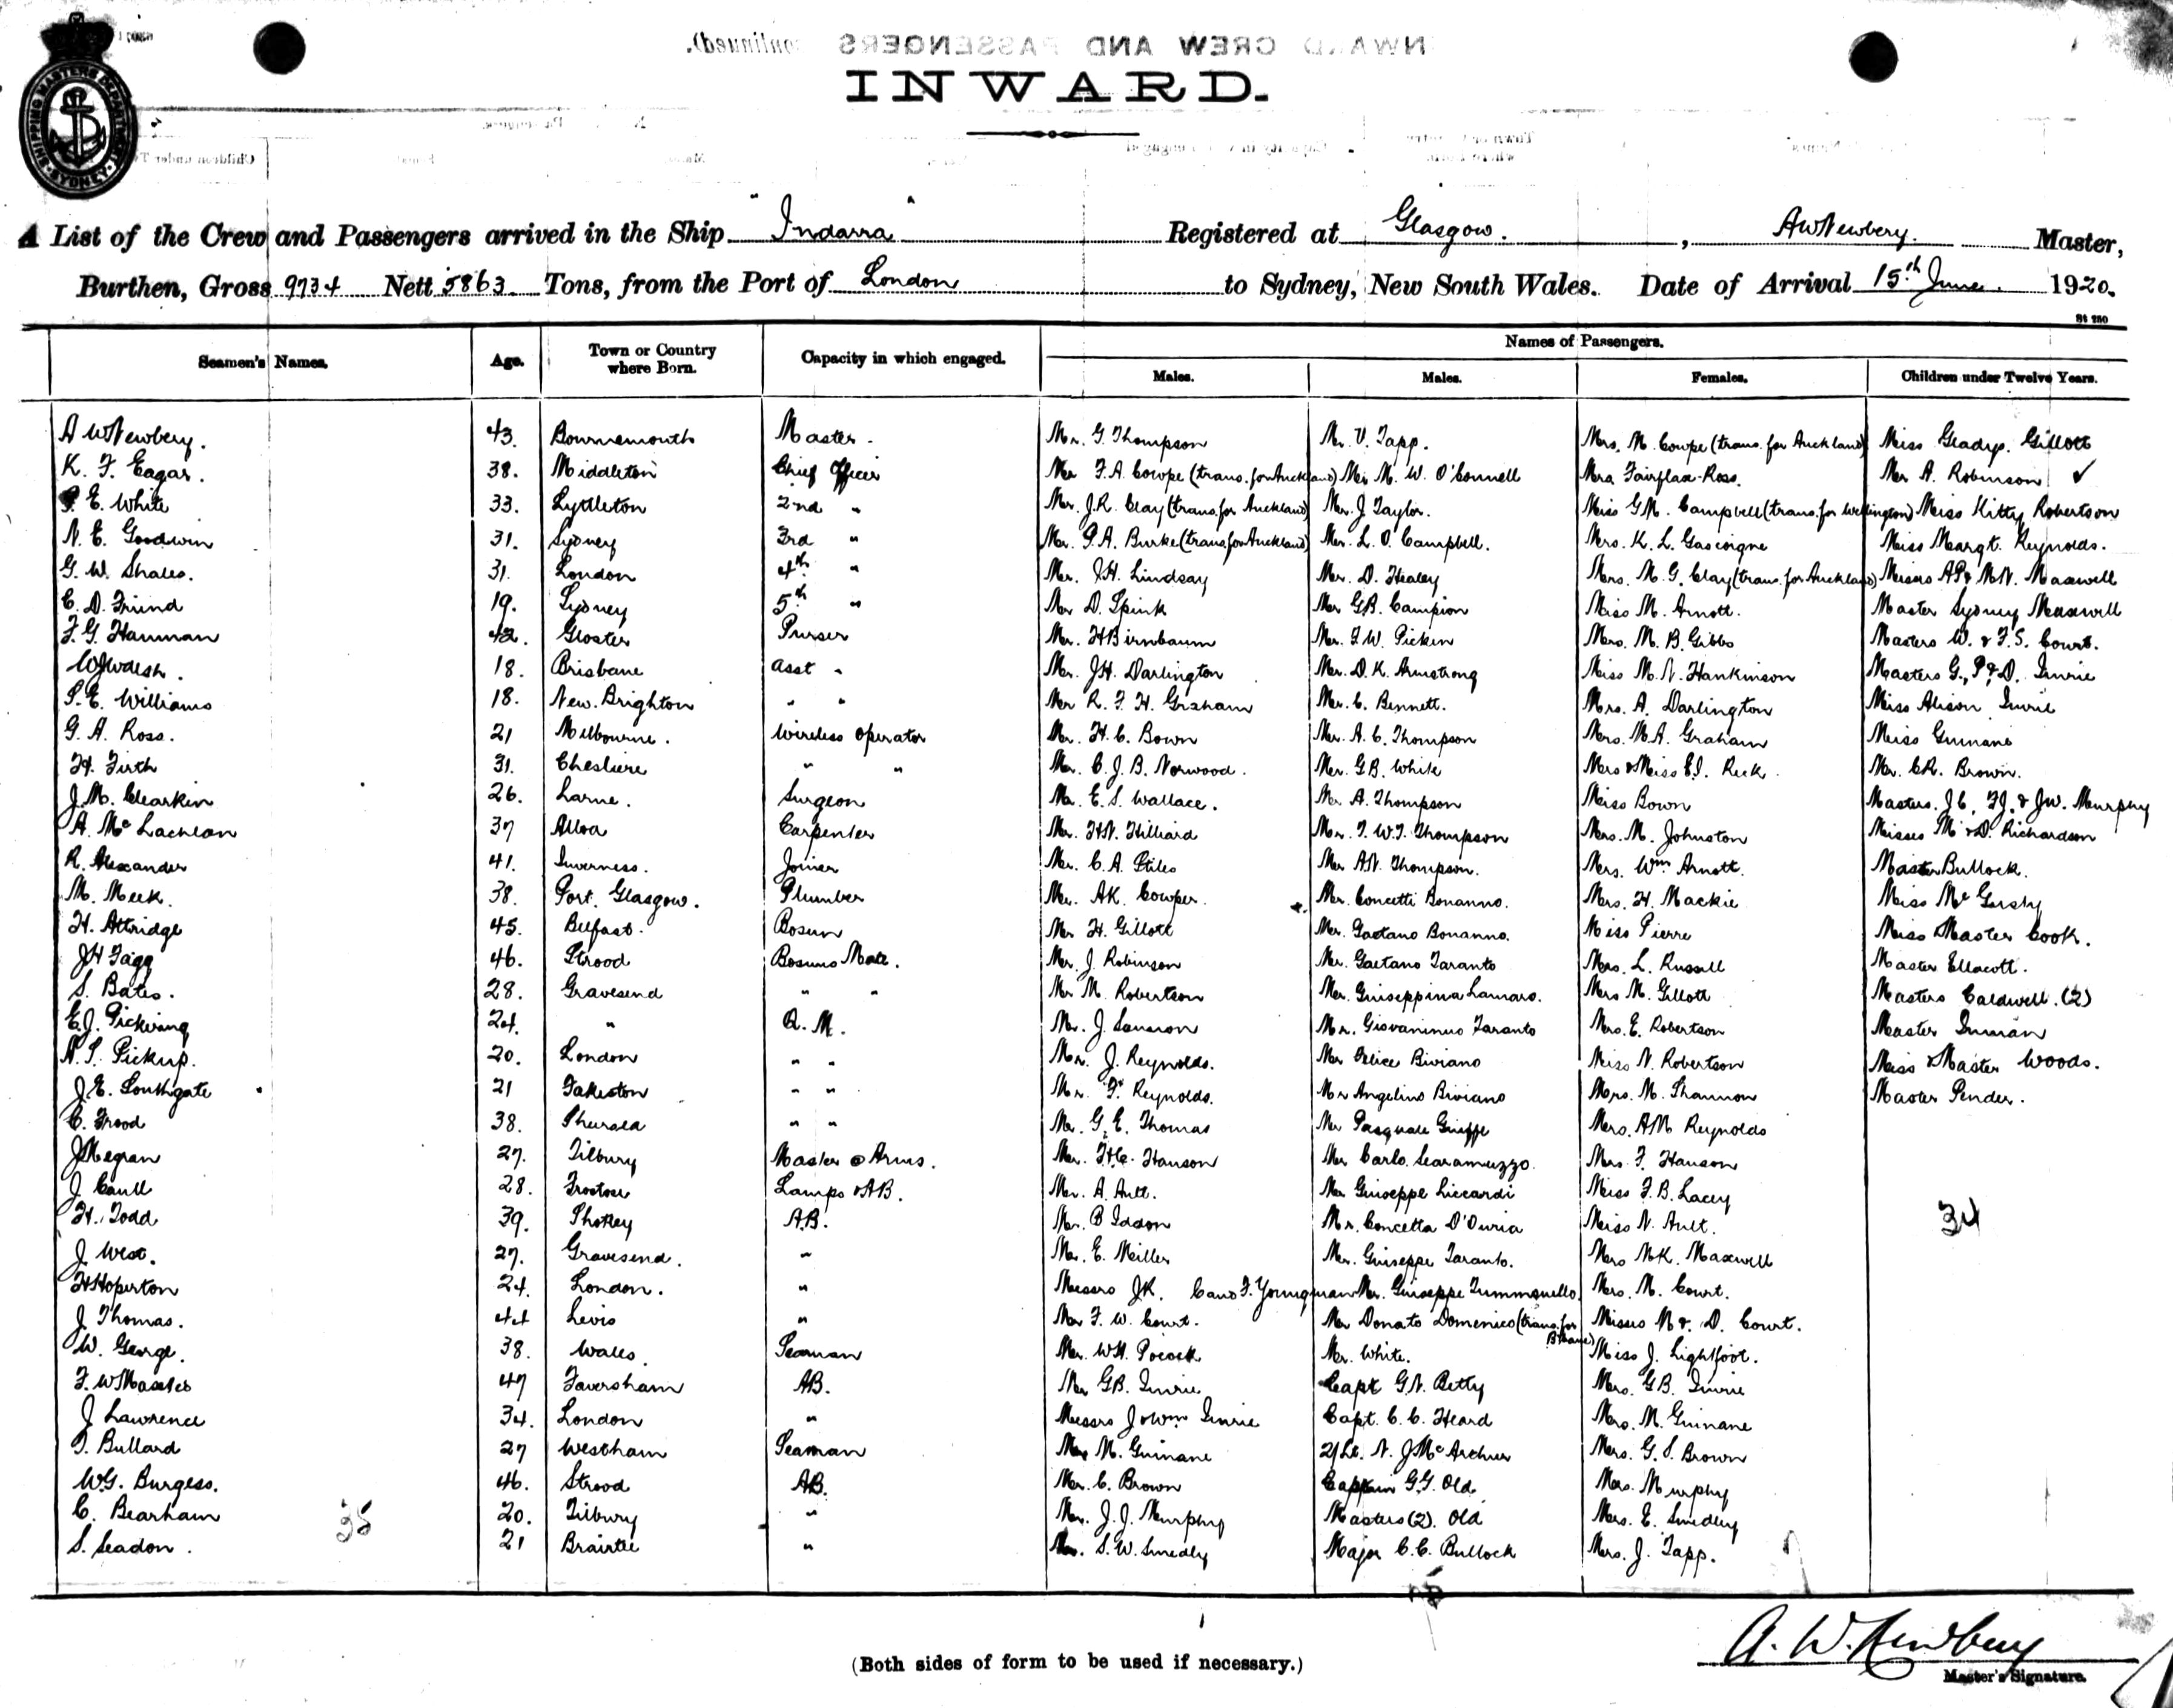 INWARD.
A List of the Crew and Passengers arrived in the Ship "Indarra" Registered at Glasgow. , A W Newbery. Master,
Burthen, Gross 9734 Nett 5863 Tons, from the Port of London to Sydney, New South Wales. Date of Arrival 15th June. 1920.
Seamen's Names. Age. Town or Country where Born. Capacity in which engaged. Names of Passengers.
Males. Males. Females. Children under Twelve Years.
A W Newbery. 43. Bournemouth Master. Mr. G. Thompson Mr. V. Tapp. Mrs. M. Cowpe (trans. for Auckland) Miss Gladys. Gillott
K. F. Eagar. 38. Middleton Chief Officer Mr F. A. Cowpe (trans. for Auckland) Mr M. W. O'Connell Mrs Fairflax-Ross. Mr A. Robinson ✓
E. White 33. Lyttleton 2nd " Mr. J.R. Clay (trans. for Auckland) Mr. J Taylor. Miss G M. Campbell (trans. for Wellington) Miss Kitty Robertson
N. E. Goodwin 31. Sydney 3rd " Mr. P. A. Burke (trans for Auckland) Mr. L. O. Campbell. Mrs. K. L. Gascoigne Miss Margt. Reynolds.
G. W. Shales. 31. London 4th " Mr. J.H. Lindsay Mr. D. Healey Mrs. M. G. Clay (trans. for Auckland) Misses A P & M N. Maxwell
C. D. Friend 19. Sydney 5th " Mr D. Spink Mr G B. Campion Miss M. Arnott. Master Sydney Maxwell
F. G. Hamman 42. Gloster Purser Mr. H Birnbaum Mr. F. W. Picken Mrs. M. B. Gibbs Masters W. & F. S. Court.
W J Walsh. 18. Brisbane asst " Mr. J H. Darlington Mr. D. K. Armstrong Miss M. N. Hankinson Masters G., P. & D. Imrie
S. E. Williams 18. New. Brighton " " Mr R. F. H. Graham Mr. C. Bennett. Mrs. A. Darlington Miss Alison Imrie
G. A. Ross. 21 Melbourne. Wireless Operator Mr. H. C. Bown Mr. A. C. Thompson Mrs. M. A. Graham Miss Guinane
H. Firth 31. Cheshire " " Mr. C. J. B. Norwood. Mr. G B. White Mrs & Miss E. J. Reek. Mr. C R. Brown.
J. M. Clearkin 26. Larne. Surgeon Mr. E. S. Wallace. Mr A. Thompson Miss Bown Masters. J C, F J. & J W. Murphy
A. McLachlan 37 Alloa Carpenter Mr. H N. Hilliard Mr. F. W. J. Thompson Mrs. M. Johnston Misses M & D. Richardson
R. Alexander 41. Inverness. Joiner Mr. C. A. Stiles Mr A N. Thompson. Mrs. Wm. Arnott. Master Bullock.
M. Meek. 38. Port. Glasgow. Plumber Mr. A K. Cowper. Mr. Concetti Bonanno. Mrs. H. Mackie Miss
H. Attridge 45. Belfast. Bosun Mr H. Gillott Mr. Gaetano Bonanno. Miss Pierre Miss & Master Cook.
J H Fagg 46. Strood Bosuns Mate. Mr. J. Robinson Mr. Gaetano Taranto Mrs. L. Russell Master Ellacott.
S. Bates. 28. Gravesend " " Mr M. Robertson Mr. Guiseppina Lamaro. Mrs M. Gillott Masters Caldwell. (2)
E. J. Pickering 24. " Q. M. Mr. J. Mr. Giovaninno Taranto Mrs. E. Robertson Master Inman
N. S. Pickup. 20. London " " Mr. J. Reynolds. Mr Felice Biviano Miss N. Robertson Miss & Master Woods.
J. E. Southgate 21 " " Mr. F. Reynolds. Mr Angelino Biviano Mrs. M. Shannon Master Pender.
C. Frood 38. " " Mr. G. E. Thomas Mr Pasquale Giuffe Mrs. A M Reynolds
J Kegran 27. Tilbury Master @ Arms. Mr. H C. Hanson Mr Carlo. Scaramuzzo. Mrs. F. Hanson
J Caull 28. Lamps & AB. Mr. A. Ault. Mr Giuseppe Liccardi Miss F. B. Lacey
H. Todd 39. Shotley A.B. Mr. B Iddon Mr. Concetta D'Ouria Miss N. Ault. 34
J West. 27. Gravesend. " Mr. E. Miller Mr. Giuseppe Taranto. Mrs M K. Maxwell
H Hoperton 24. London. " Messrs J K. C and F. Youngman Mr. Giuseppe Tummanello. Mrs. M. Court.
J Thomas. 44 Levis " Mr F. W. Court. Mr Donato Domenico (trans. for Bbane) Misses M & D. Court.
W. George. 38. Wales Seaman Mr. W H. Pocock Mr. White. Miss J. Lightfoot.
F. W 47 Faversham AB. Mr G B. Imrie Capt G. N. Betty Mrs. G B. Imrie
J Lawrence 34. London " Messrs J & Wm Imrie Capt. C. C. Heard Mrs. M. Guinane
J. Bullard 27 Westham Seaman Mr. M. Guinane 2/Lt. N. J McArthur Mrs. G. S. Brown
W. G. Burgess. 46. Strood AB. Mr. C. Brown Captain G. G. Old Mrs. Murphy
C. Bearham 35 20. Tilbury " Mr. J. J. Murphy Masters (2). Old Mrs. E. Smedley
S. Seadon. 21 Braintee " Mr. S. W. Smedly Major C. C. Bullock Mrs. J. Tapp.
(Both sides of form to be used if necessary.)
A. W. Newbery
Master's Signature.